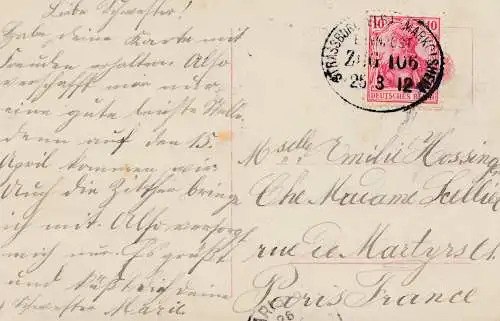 Liebe Schwester!
Habe deine Karte mit
Freuden erhalten. Also
verschafft mir nur
eine gute leichte Stelle
denn auf den 15.
April kommen wir
Auch die Zither bring
ich mit. Also versorgt
mich nur. Es grüßt
und küßt dich deine
Schwester Marie.
10 10
STRASSBURG
ZUG 106
25 3 12
DEUTSCHES REICH
Mselle Emilie Hossing
Che Madame Scellie
rue De Martyrs 61
Paris France
PARIS
26